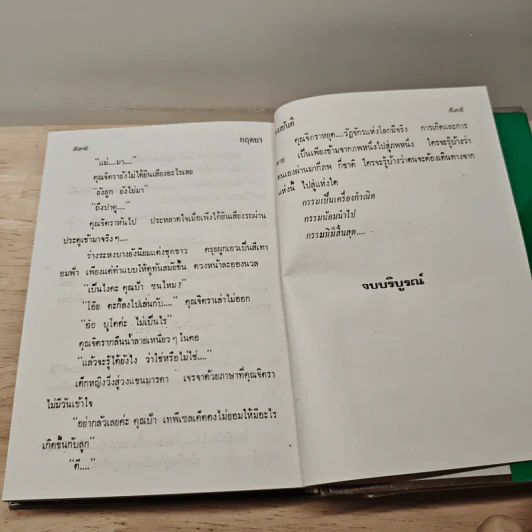 ๕๓๔
กฤตยา
"แม่....มา...."
คุณจิตรายังไม่ได้ยินเสียงอะไรเลย
"ยังลูก ยังไม่มา"
"ถึงปาตู...."
คุณจิตราหันไป ประหลาดใจเมื่อเพิ่งได้ยินเสียงรถผ่าน
ประตูเข้ามาจริงๆ....
ร่างระหงบางยังนิยมแต่งชุดขาว ครุยผูกเอวเป็นสีเทา
อมฟ้า เพียงแต่ทำแบบให้ดูทันสมัยขึ้น ดวงหน้าละอองนวล
"เป็นไงคะ คุณป้า ซนไหม?"
"โอ๊ย ตะกี้ลงไปเล่นกับ...." คุณจิตราเล่าไม่ออก
"อ๋อ งูใดค่ะ ไม่เป็นไร"
คุณจิตรากลืนน้ำลายเหนียว ๆ ในคอ
"แล้วจะรู้ได้ยังไง ว่าใช่หรือไม่ใช่...."
เด็กหญิงวิ่งสู่วงแขนมารดา เจรจาด้วยภาษาที่คุณจิตรา
ไม่มีวันเข้าใจ
"อย่ากลัวเลยค่ะ คุณป้า เทพีเซลเค็ตคงไม่ยอมให้มีอะไร
เกิดขึ้นกับลูก"
"ก็...."
๕๓๕
คุณจิตราหยุด....วัฏจักรแห่งโลกมีจริง การเกิดและการ
ตาย เป็นเพียงข้ามจากภพหนึ่งไปสู่ภพหนึ่ง ใครจะรู้บ้างว่า
ตนเองผ่านมากี่ภพ กี่ชาติ ใครจะรู้บ้างว่าตนจะต้องเดินทางจาก
แห่งนี้ ไปสู่แห่งใด
กรรมเป็นเครื่องกำเนิด
กรรมน้อมนำไป
กรรมมิมีสิ้นสุด....
จบบริบูรณ์